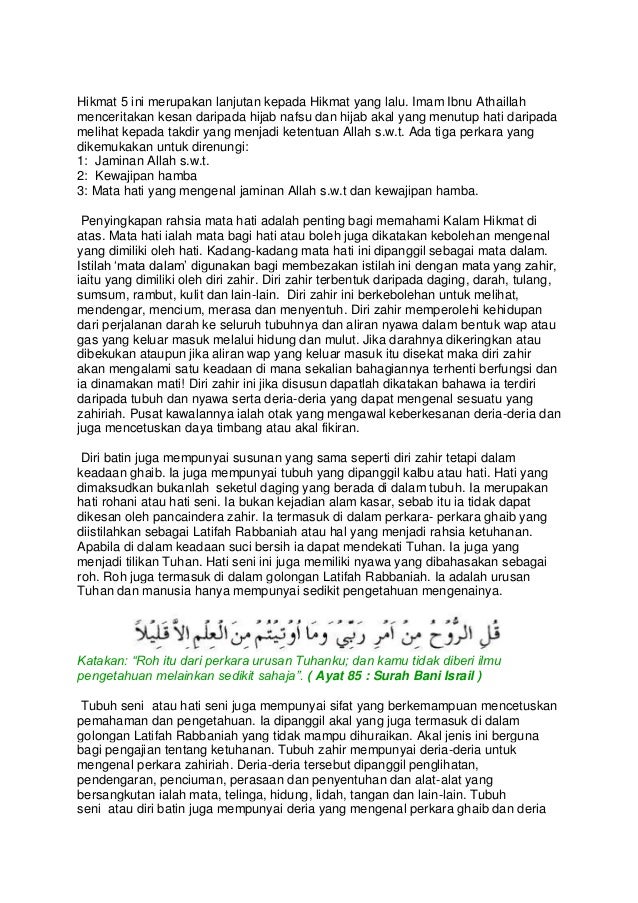 Hikmat 5 ini merupakan lanjutan kepada Hikmat yang lalu. Imam Ibnu Athaillah
menceritakan kesan daripada hijab nafsu dan hijab akal yang menutup hati daripada
melihat kepada takdir yang menjadi ketentuan Allah s.w.t. Ada tiga perkara yang
dikemukakan untuk direnungi:
1: Jaminan Allah s.w.t.
2: Kewajipan hamba
3: Mata hati yang mengenal jaminan Allah s.w.t dan kewajipan hamba.
Penyingkapan rahsia mata hati adalah penting bagi memahami Kalam Hikmat di
atas. Mata hati ialah mata bagi hati atau boleh juga dikatakan kebolehan mengenal
yang dimiliki oleh hati. Kadang-kadang mata hati ini dipanggil sebagai mata dalam.
Istilah ‘mata dalam’ digunakan bagi membezakan istilah ini dengan mata yang zahir,
iaitu yang dimiliki oleh diri zahir. Diri zahir terbentuk daripada daging, darah, tulang,
sumsum, rambut, kulit dan lain-lain. Diri zahir ini berkebolehan untuk melihat,
mendengar, mencium, merasa dan menyentuh. Diri zahir memperolehi kehidupan
dari perjalanan darah ke seluruh tubuhnya dan aliran nyawa dalam bentuk wap atau
gas yang keluar masuk melalui hidung dan mulut. Jika darahnya dikeringkan atau
dibekukan ataupun jika aliran wap yang keluar masuk itu disekat maka diri zahir
akan mengalami satu keadaan di mana sekalian bahagiannya terhenti berfungsi dan
ia dinamakan mati! Diri zahir ini jika disusun dapatlah dikatakan bahawa ia terdiri
daripada tubuh dan nyawa serta deria-deria yang dapat mengenal sesuatu yang
zahiriah. Pusat kawalannya ialah otak yang mengawal keberkesanan deria-deria dan
juga mencetuskan daya timbang atau akal fikiran.
Diri batin juga mempunyai susunan yang sama seperti diri zahir tetapi dalam
keadaan ghaib. Ia juga mempunyai tubuh yang dipanggil kalbu atau hati. Hati yang
dimaksudkan bukanlah seketul daging yang berada di dalam tubuh. Ia merupakan
hati rohani atau hati seni. Ia bukan kejadian alam kasar, sebab itu ia tidak dapat
dikesan oleh pancaindera zahir. Ia termasuk di dalam perkara- perkara ghaib yang
diistilahkan sebagai Latifah Rabbaniah atau hal yang menjadi rahsia ketuhanan.
Apabila di dalam keadaan suci bersih ia dapat mendekati Tuhan. Ia juga yang
menjadi tilikan Tuhan. Hati seni ini juga memiliki nyawa yang dibahasakan sebagai
roh. Roh juga termasuk di dalam golongan Latifah Rabbaniah. Ia adalah urusan
Tuhan dan manusia hanya mempunyai sedikit pengetahuan mengenainya.
قُلِ الرُّوْحُ مِنْ اَمْرِ رَبِّيْ وَمَا اُوْتِيْتُمْ مِنَ الْعِلْمِ اِلاَّ قَلِيْلاً
Katakan: “Roh itu dari perkara urusan Tuhanku; dan kamu tidak diberi ilmu
pengetahuan melainkan sedikit sahaja”. ( Ayat 85 : Surah Bani Israil )
Tubuh seni atau hati seni juga mempunyai sifat yang berkemampuan mencetuskan
pemahaman dan pengetahuan. Ia dipanggil akal yang juga termasuk di dalam
golongan Latifah Rabbaniah yang tidak mampu dihuraikan. Akal jenis ini berguna
bagi pengajian tentang ketuhanan. Tubuh zahir mempunyai deria-deria untuk
mengenal perkara zahiriah. Deria-deria tersebut dipanggil penglihatan,
pendengaran, penciuman, perasaan dan penyentuhan dan alat-alat yang
bersangkutan ialah mata, telinga, hidung, lidah, tangan dan lain-lain. Tubuh
seni atau diri batin juga mempunyai deria yang mengenal perkara ghaib dan deria